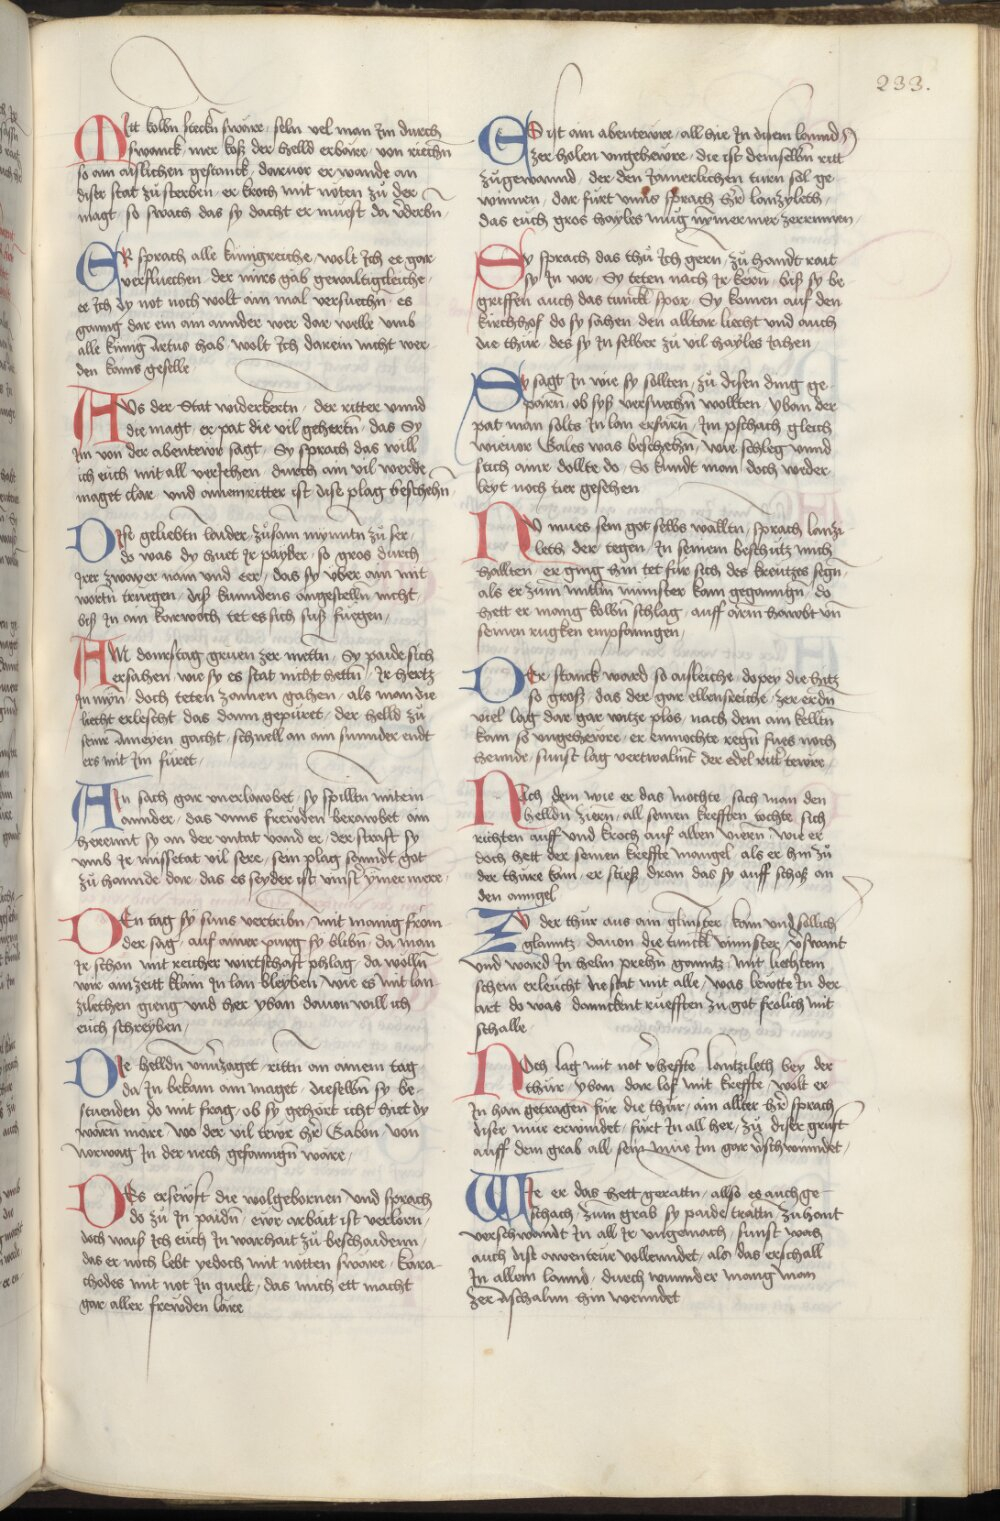 233.
Mitt kolbn steckn swäre / seln vel man Im durch
swanck / mer kosz der helld erbäre / von riechn
so ain aislichen gestanck / daruor er wande an
diser stat zu sterben / er kroch mit nöten zu der
magt / so swach das sy dacht er muest da verderbn /
ER sprach alle künigreiche / wolt Ich ee gar
versluechen / der mirs gab gewaltigkleiche /
ee Ich dy not noch wolt ain mal versuechn / es
gonng dar ein ain annder wer dar welle / vmb
alle künig Artus hab / wolt Ich darein nicht wer /
den kains geselle /
AVs der Stat widerkertn / der ritter vnnd
die magt / er pat die vil gehertn / das Sy
Im von der abentewr sagt / Sy sprach das will
ich euch mit all veriehen / durch ain vil werde
maget clar / vnd ainem ritter ist dise plag beschehn /
DIse geliebtn baider / zusam mynntn zu ser /
do was dy huet Ir payder / so gros durch
Irer zwayer nam vnd eer / das sy vber ain mit
wortn truegen / disz kunndens angestelln nicht /
bisz In ain karwoch tet es sich susz fuegen /
AM donrstag gruen zer mettn / Sy paide sich
ersahen / wie sy es stat nicht hettn / Ir hertz
In myn / doch teten zamen gahen / als man die
liecht erlescht das dann gepüret / der helld zu
seinr Ameyen gacht / schnell an ain sunnder endt
ers mit Im füret /
AIn sach gar vnerlawbet / sy spilltn mitein
annder / das vnns frewden berawbet / ain
heremit sy an der vntat vand er / der strafft sy
vmb Ir missetat vil sere / sein plag senndt got
zu hannde dar / das es seyder ist vnnst ymer mere /
DEn tag sy suns vertribn / mit manig from /
der sag / auf ainer purg sy blibn / da man
Ir schon mit reicher wirtschafft phlag / da wolln
wir ain zeitt klain In lan bleyben / wie es mit lan /
zilethen gieng vnd her yban dauon will ich
euch schreyben /
DIe helldn vnuerzaget / rittn an ainem tag
da In bekam ain maget / dieselbn sy be /
stuenden do mit frag / ob sy gehört icht hiet dy
warn märe / wo der vil tewr her Gabon / von
Norwag In der nech gefanngn wäre /
DEs ersewfft die wolgebornen / vnd sprach
do zu In paidn / ewr arbait ist verlorn /
doch wais Ich euch In warhait zu beschaidenn /
das er noch lebt yedoch mit nötten swäre / kara /
chodes mit not In quelt / das mich ett macht
gar aller frewden läre
ES ist ain abentewre / all hie In disem lannd
zer holen vngehewre / die ist demselbn ritt
zugewannd / der den Iamerlichen turn sol ge /
winnen / dar fürt vnns sprach her lanzyleth /
das euch gros hayles müg nymer mer zerrinnen /
SY sprach das thu Ich gern / zu handt rait
sy In vor / Sy teten nach Ir kern / bisz sy be /
griffen auch das tunckl spor / Sy komen auf den
kirchhof do sy sahen / den alltar liecht vnd auch
die thür / des sy In selber zu vil hayles Iahen /
SY sagt In wie sy sollten / zu disen ding ge /
parn / ob sys versuechn wollten / yban der
pat man solts In lan erfarn / Im pschach gleich
wieuor Gales was beschehn / wie schleg vnnd
stich ainr dollte do / So kundt man doch wider
leyt noch tier gesehen
NV mues sein got selbs walltn / sprach lanzi /
leth der tegen / In seinem beschütz mich
hallten / er ging hin tet für sich des kreutzes segn /
als er zum mittln münster kam gegangn / do
hett er manig kolbn schlag / auff arm hawbt vn
seinen rugken empfanngen /
DEr stanck ward so aisleiche / dopey die hitz
so grosz / das der gar ellensreiche / zer erdn
viel / lag dar gar witze plos / nach dem ain kelltn
kam so vngehewre / er enmochte regn fues noch
hennde / sunst lag vertwalmt der edel ritter tewre /
NAch dem wie er das mochte / sach man den
helldn ziern / all seinen krefften tochte / sich
richten auff vnd kroch auf allen viern / wie er
doch hett der seinen kreffte mangel / als er hin zu
der thüre kam / er stiesz dran das sy auff schosz an
den anngel
ZV der thür aus ain glinster / kam vnd sollich
glanntz / dauon die tunckl vinnster / verswant
vnd ward In helm prehn ganntz / mit liechtem
schein erleücht die stat mit alle / was lewtte In der
art do was / danncknt rüefften zu got frolich mit
schalle /
NOch lag mit not verheffte / lantzileth bey der
thür / yban dar lof mit kreffte / wolt er
In han getragen für die thür / ain allter her sprach
diser mue erwindet / fürt In all her / zu diser grufft
auff dem grab all sein mue Im gar verschwindet /
WIe er das hett gerattn / allso es auch ge /
schach / zum grab sy paide trattn / zuhant
verschwandt In all Ir vngemach / sunst was
auch dise awenteür vollenndet / als das erschall
In allem lannd / durch wunnder manig man
zer Aschalun hin wenndet